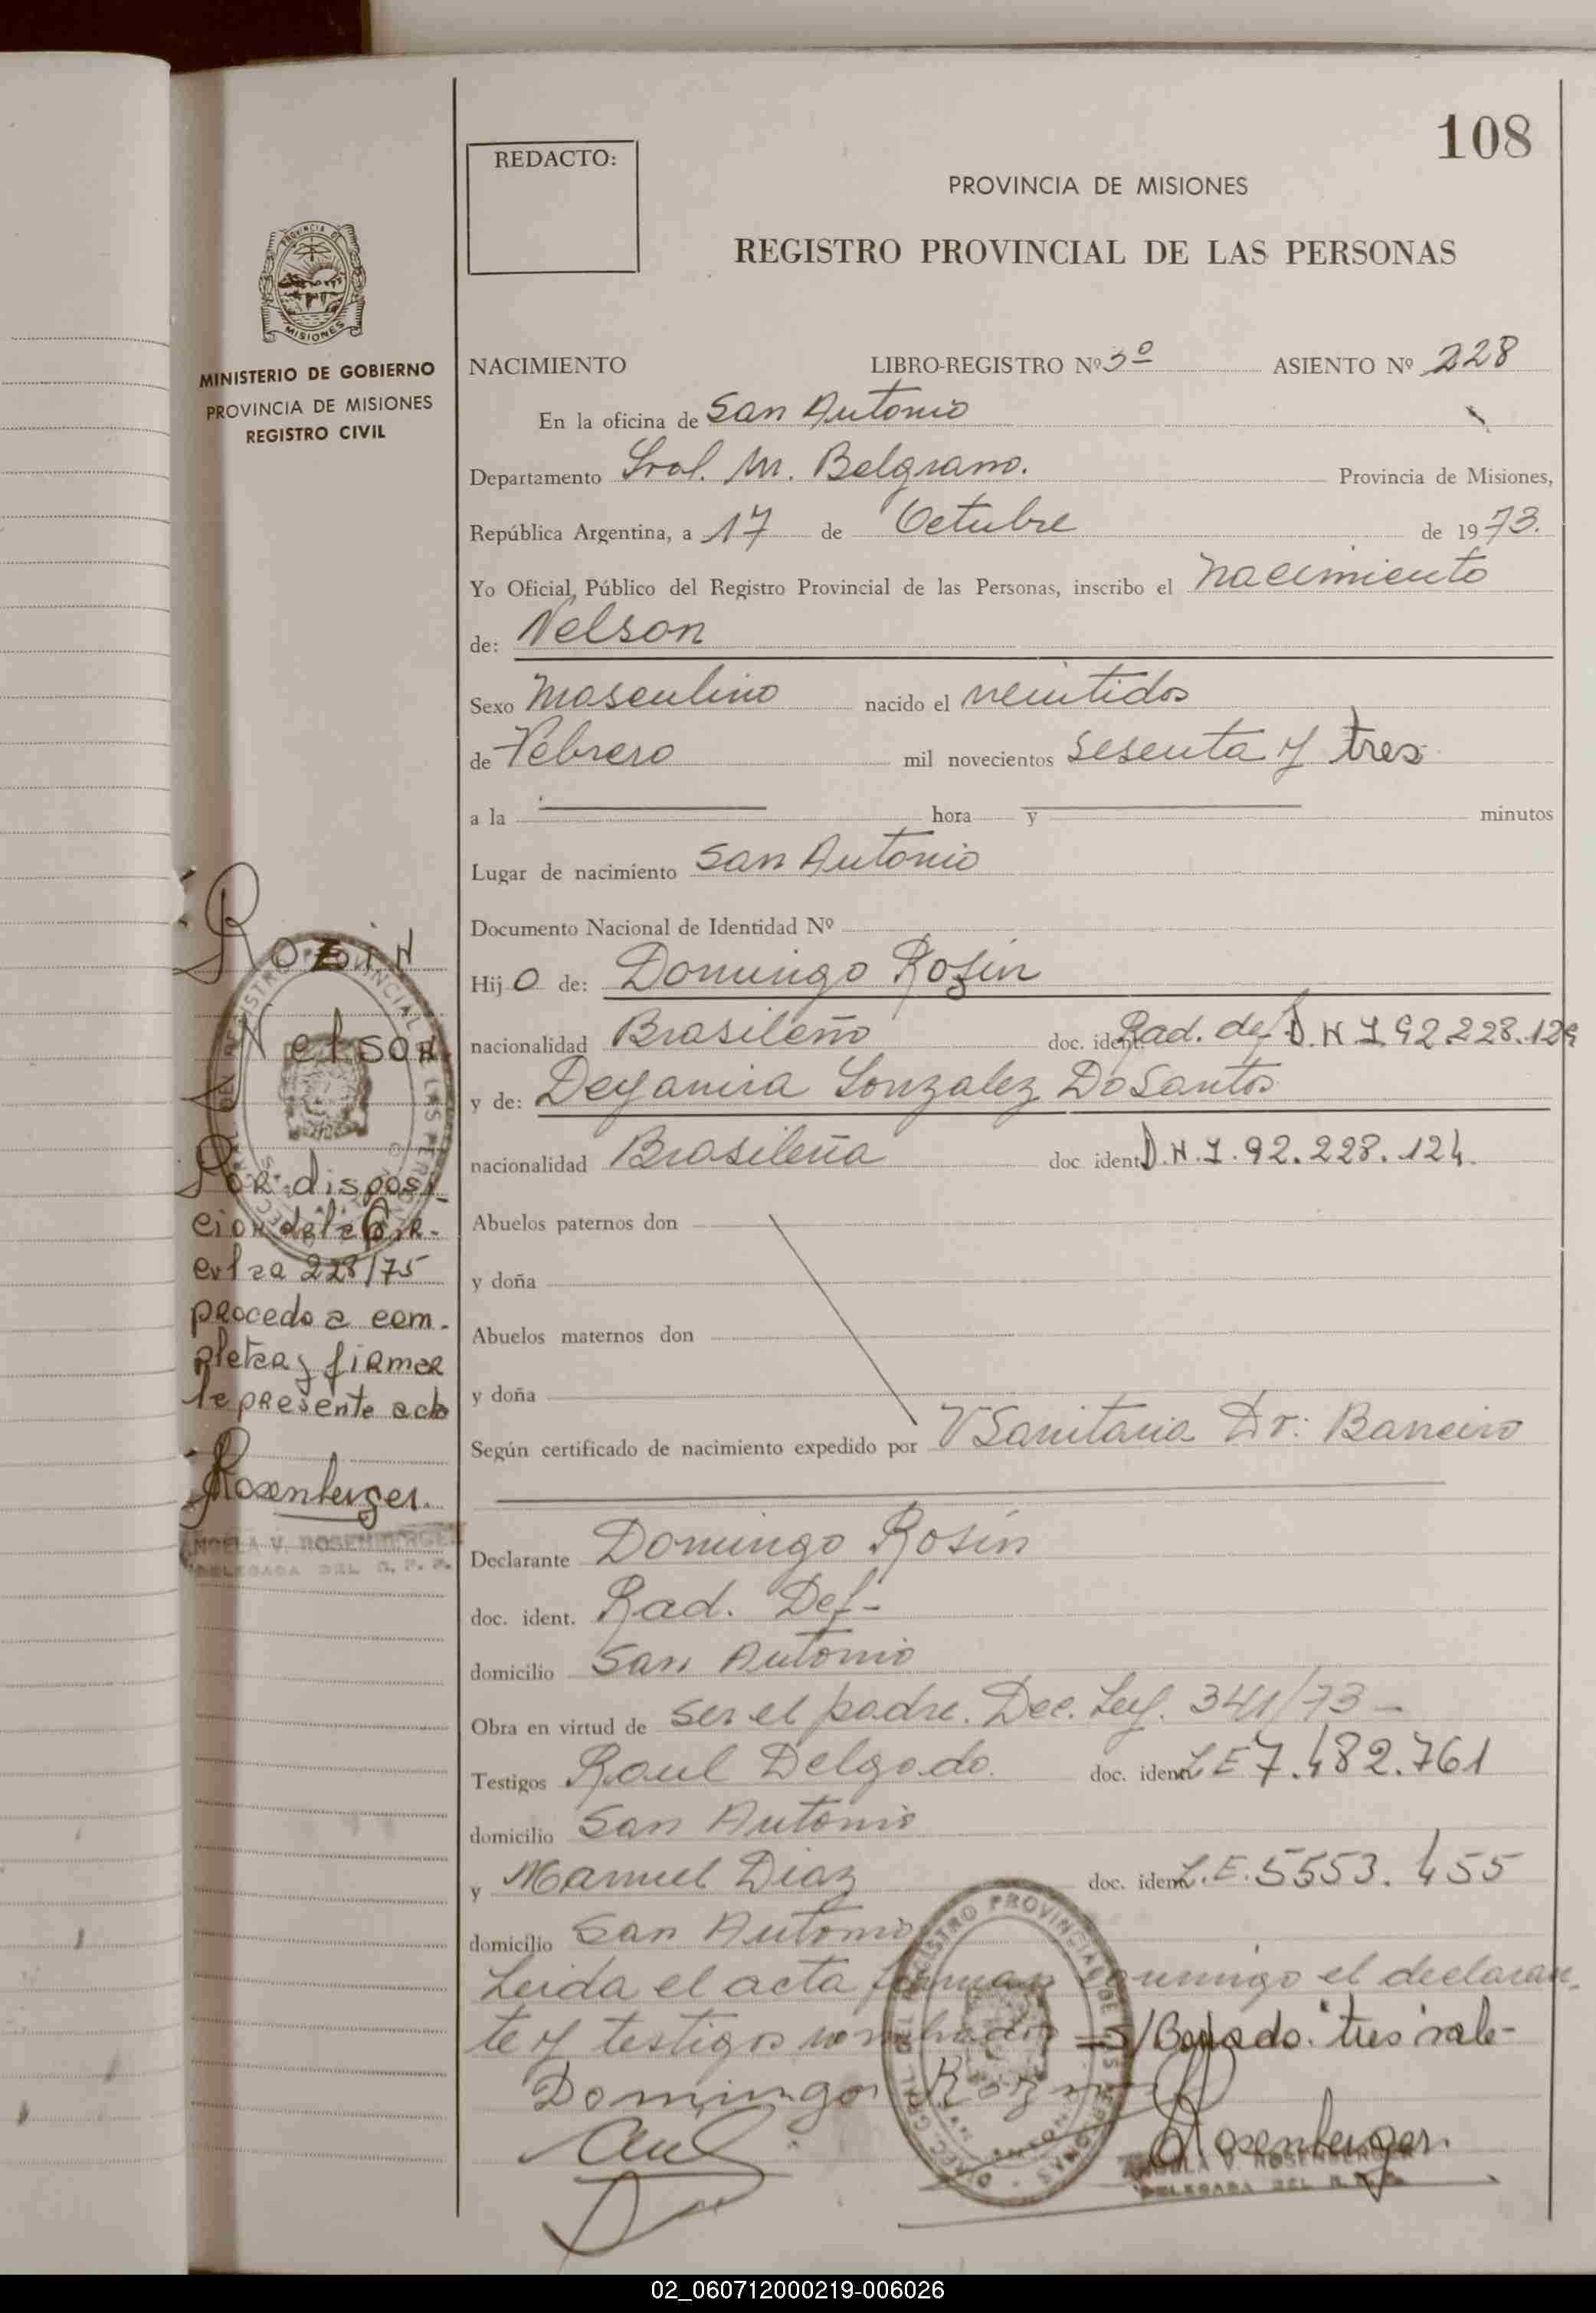 108
REDACTO:
PROVINCIA DE MISIONES
REGISTRO PROVINCIAL DE LAS PERSONAS
PROVINCIA DE
MISIONES
MINISTERIO DE GOBIERNO
PROVINCIA DE MISIONES
REGISTRO CIVIL
NACIMIENTO LIBRO-REGISTRO Nº 3º ASIENTO Nº 228
En la oficina de San Antonio
Departamento Gral. M. Belgrano. Provincia de Misiones,
República Argentina, a 17 de Octubre de 1973.
Yo Oficial Público del Registro Provincial de las Personas, inscribo el nacimiento
de: Nelson
Sexo Masculino nacido el veintidos
de Febrero mil novecientos sesenta y tres
a la hora y minutos
Lugar de nacimiento San Antonio
Documento Nacional de Identidad Nº
Hijo de: Domingo Rosin
nacionalidad Brasileño doc. ident. Rad. def D.N.I 92.228.129
y de: Deyanira Gonzalez Do Santos
nacionalidad Brasileña doc. ident. D.N.I. 92.228.124.
Abuelos paternos don
y doña
Abuelos maternos don
y doña
Según certificado de nacimiento expedido por V Sanitaria Dr: Barreiro
Declarante Domingo Rosin
doc. ident. Rad. Def-
domicilio San Antonio
Obra en virtud de ser el padre. Dec. Ley. 341/73-
Testigos Raul Delgado. doc. ident. L E 7.482.761
domicilio San Antonio
y Manuel Diaz doc. ident. L.E. 5553.455
domicilio San Antonio
Leida el acta firman conmigo el declaran-
te y testigos nombrados =S/Borrado: "tres vale-
Domingo Rozin
Rosenberger.
ANGELA V. ROSENBERGER
DELEGADA DEL R. P. P.
Rozin
Nelson
Por disposi-
cion de la Cir-
cular 228/75
procedo a com-
pletar y firmar
la presente acta
Rosenberger.
ANGELA V. ROSENBERGER
DELEGADA DEL R. P. P.
02_060712000219-006026